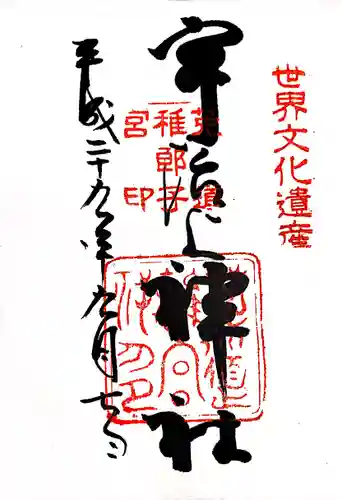 世界文化遺産
宇治上神社
菟道
稚郎子
宮印
平成二十九年九月十七日